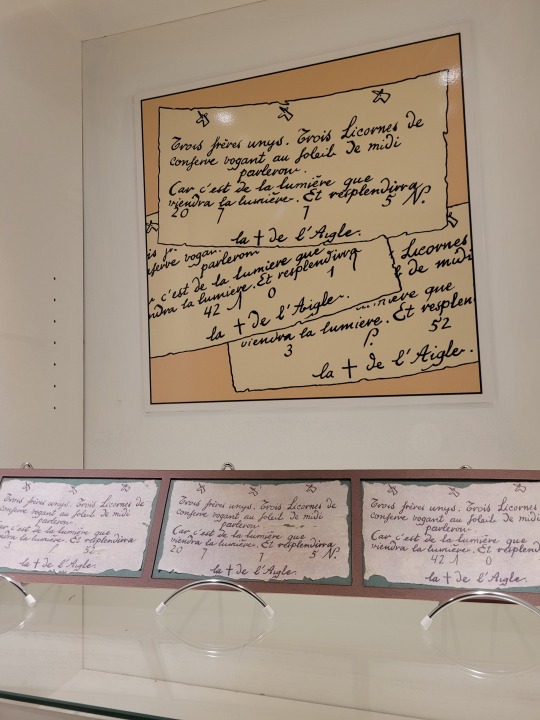 Trois frères unys. Trois Licornes de
conserve vogant au soleil de midi
parleron.
Car c'est de la lumière que
viendra la lumière. Et resplendira
20 7 7 5 N.
la † de l'Aigle.
is fr.
nserve vogan.
parleron
r c'est de la lumiere que
ndra la lumière. Et resplendira
42 1 0 1
la † de l'Aigle.
Licornes
l de midi
mière que
viendra la lumière. Et resplen
3 52
la † de l'Aigle.
Trois frères unys. Trois Licornes de
conserve vogant au soleil de midi
parleron.
ar c'est de la lumière que
ndra la lumière. Et resplendira
3 52
la † de l'Aigle.
Trois frères unys. Trois Licornes de
conserve vogant au soleil de midi
parleron.
Car c'est de la lumière que
viendra la lumière. Et resplendira
20 7 7 5 N.
la † de l'Aigle.
Trois frères unys. Trois Licornes
conserve vogant au soleil de midi
parleron.
Car c'est de la lumière que
viendra la lumière. Et resplend
42 1 0
la † de l'Aigle.